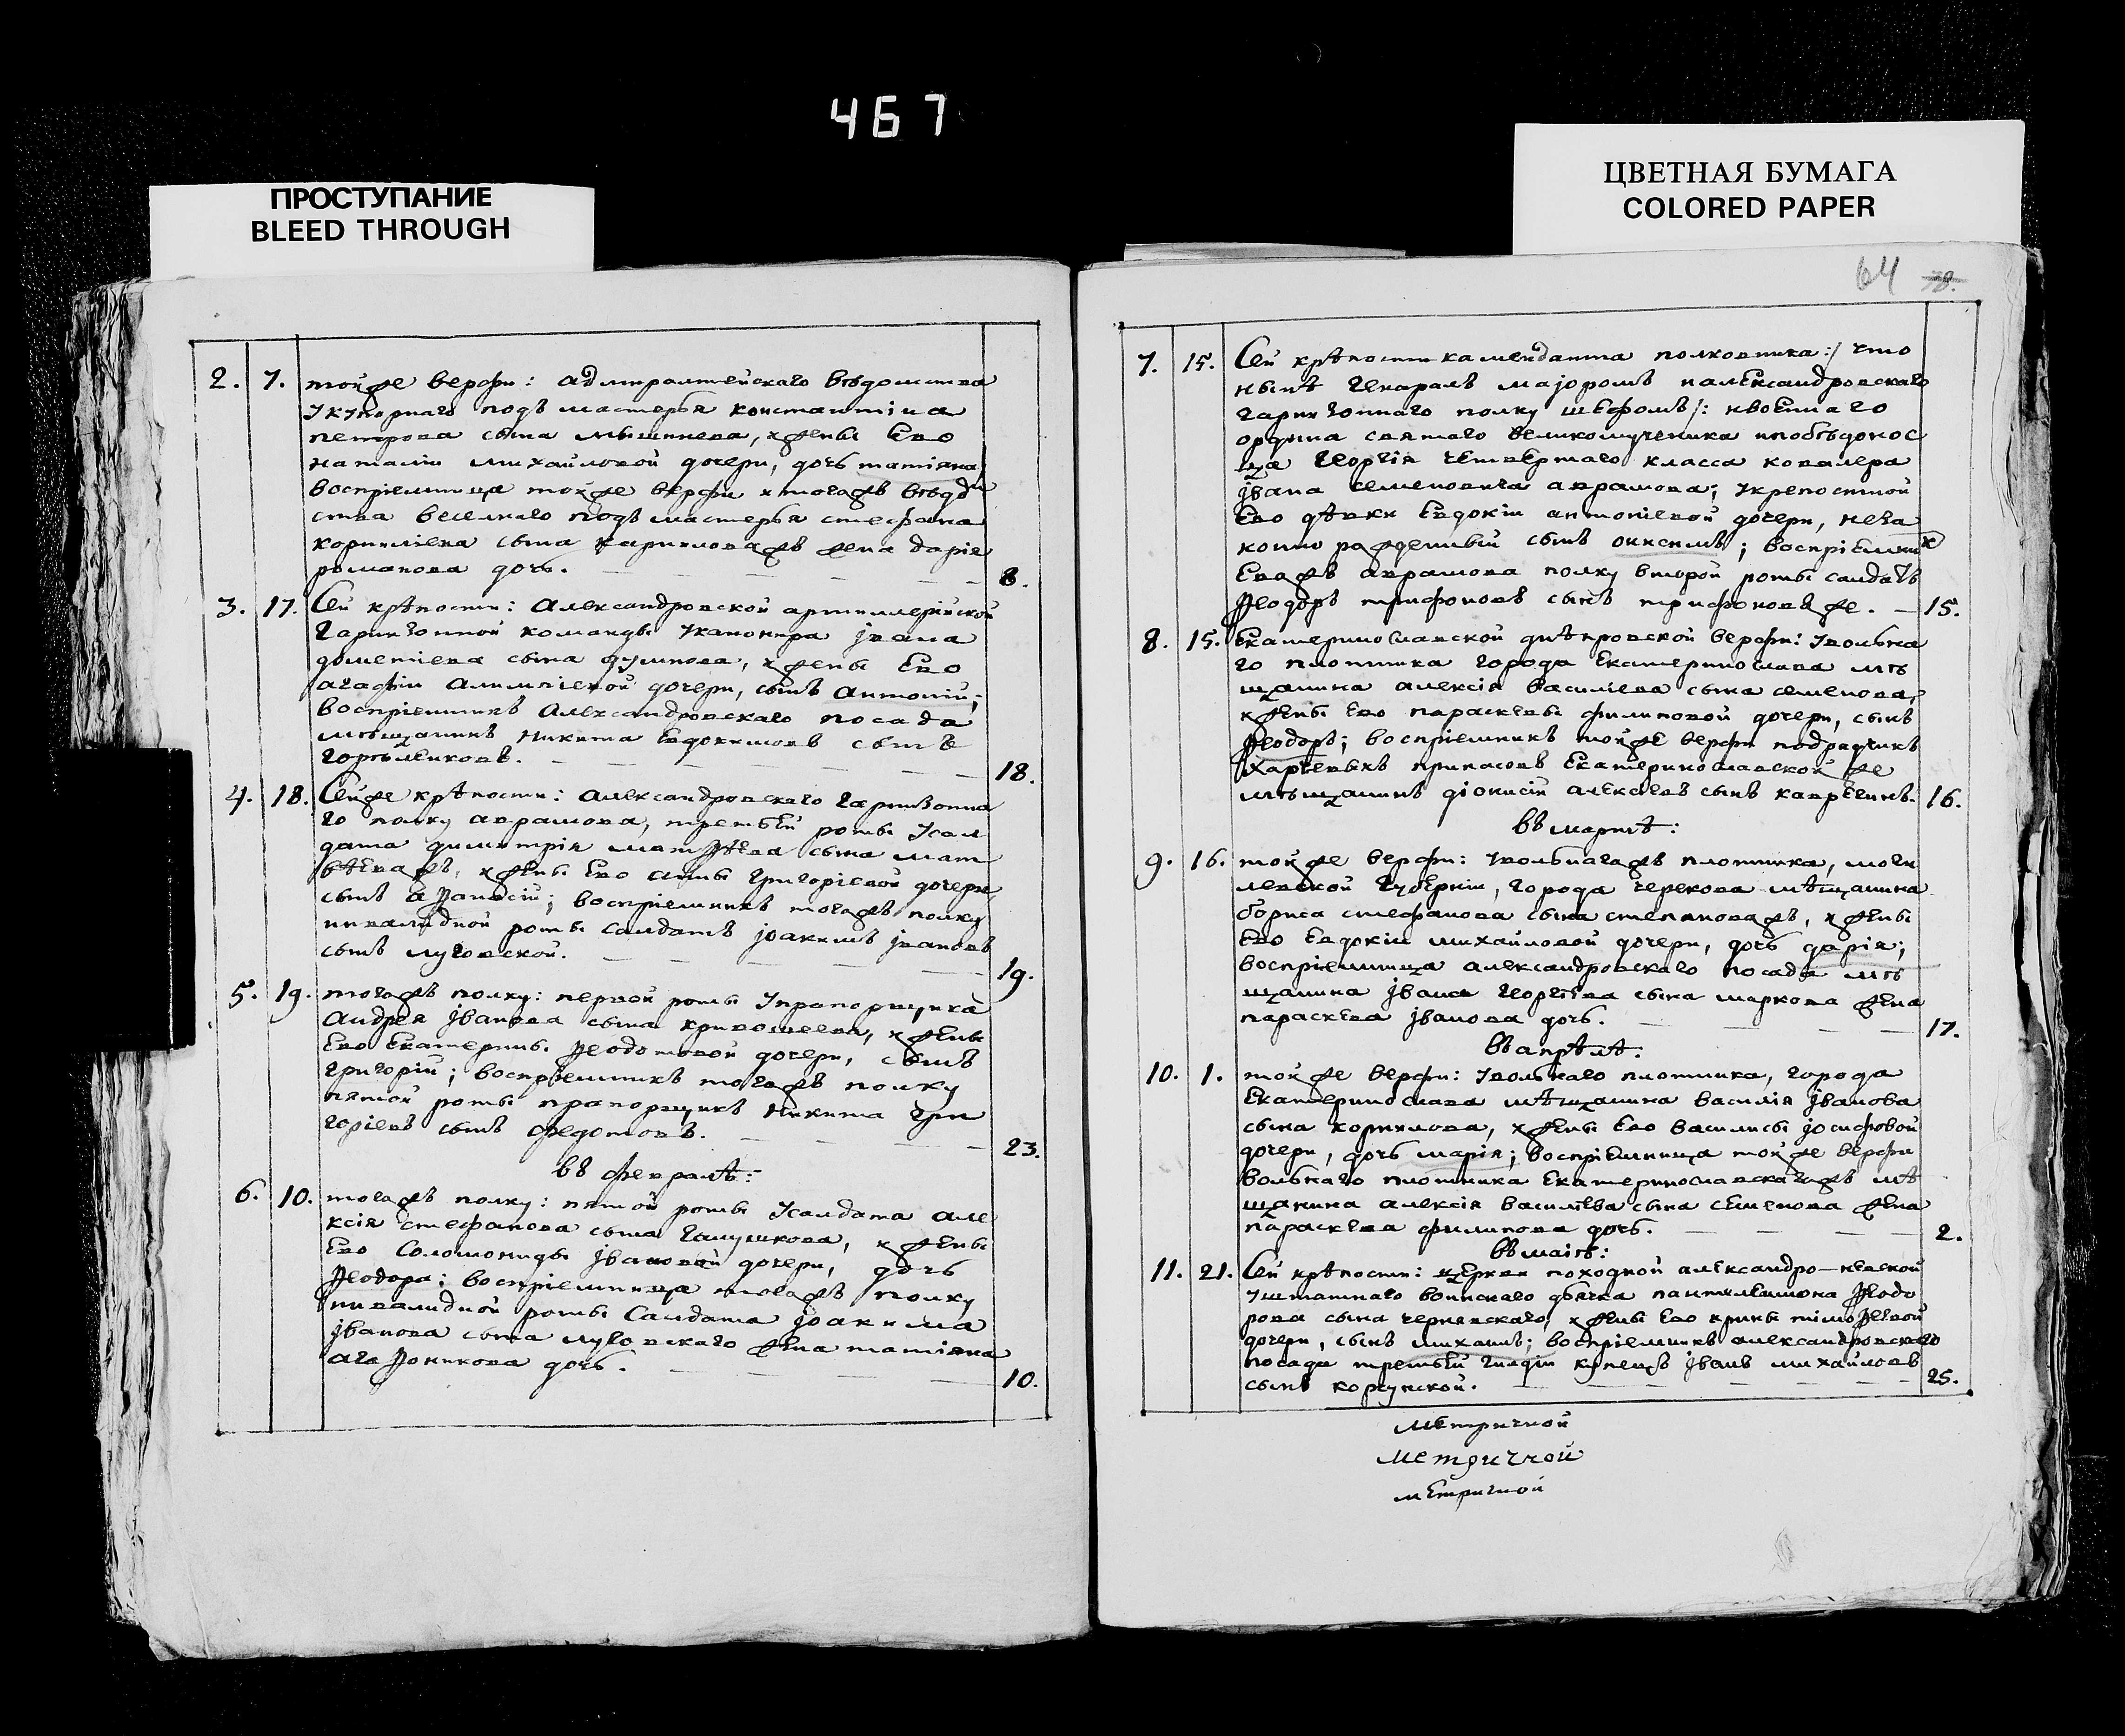 467
ПРОСТУПАНИЕ
BLEED THROUGH
ЦВЕТНАЯ БУМАГА
COLORED PAPER
64
2. 7. тойже верфи: адмиралтейскаго вѣдомства
укупорнаго подъ мастерья константина
петрова сына мышинева, жены Ево
наталіи михаиловой дочери, дочь татіяна
воспріемница тойже верфи тогажъ вѣдом
ства веселнаго подъ мастерья стефана
корнилиева сына корниловажъ жена дарія
романова дочь. 8.
3. 17. Сей крѣпости: Александровской артиллерійской
гарнизонной команды уканонира јвана
дометіева сына думнова, жены Ево
агафіи алимпіевой дочери, сынъ антоній;
воспріемникъ Александровскаго посада
мѣщанинъ Никита Евдокимовъ сынъ
горѣленковъ. 18.
4. 18. Сейже крѣпости: Александровскаго гарнизонна
го полку аврамова, третьей роты усал
дата димитрія матѳѣева сына мат
вѣеважъ, жены Ево анны григоріевой дочери,
сынъ аѳанасій; воспріемникъ тогажъ полку
инвалидной роты салдатъ јоакимъ јвановъ
сынъ луговской. 19.
5. 19. тогажъ полку: первой роты упрапорщика
Андрея јванова сына кривошеева, жены
Ево Екатерины ѳеодотовой дочери, сынъ
григорій; воспріемникъ тогажъ полку
пятой роты прапорщикъ Никита Гри
горіевъ сынъ федотовъ. 23.
въ февралѣ:
6. 10. тогажъ полку: пятой роты усалдата але
ксія стефанова сына галушкова, жены
Ево Соломониды јвановой дочери, дочь
ѳеодора; воспріемница тогажъ полку
инвалидной роты Салдата јоакима
јванова сына луговскаго жена татіяна
агаѳоникова дочь. 10.
7. 15. Сей крѣпости камендантта полковника:/ что
нынѣ генаралъ маіоромъ налександровскаго
гарнизоннаго полку шефомъ/: ивоеннаго
ордина святаго великомученика ипобѣдонос
ца Георгія четвертаго класса ковалера
јвана семеновича аврамова; укрепостной
Ево дѣвки Евдокіи антоніевой дочери, неза
конно рожденный сынъ онисимъ; воспріемникъ
Еважъ аврамова полку второй роты салдатъ
ѳеодоръ трифоновъ сынъ трифоновъже. 15.
8. 15. Екатеринославской днѣпровской верфи: уволна
го плотника города Екатеринослава мѣ
щанина алексія василіева сына семенова,
жены Ево параскевы филиповой дочери, сынъ
ѳеодоръ; воспріемникъ тойже верфи подрядчикъ
харчевыхъ припасовъ Екатеринославской же
мѣщанинъ діонисій алексѣевъ сынъ 16.
въ мартѣ:
9. 16. тойже верфи: уволнагажъ плотника, моги
левской губерніи, города черекова мѣщанина
бориса стефанова сына степановажъ, жены
Ево Евдокіи михаиловой дочери, дочь дарія;
воспріемница александровскаго посада мѣ
щанина јвана Георгіева сына маркова жена
параскева јванова дочь. 17.
въ апрѣлѣ:
10. 1. тойже верфи: уволнаго плотника, города
Екатеринослава мѣщанина василія јванова
сына корнилова, жены Ево василисы јосифовой
дочери, дочь марія; воспріемница тойже верфи
волнаго плотника Екатеринославскагажъ мѣ
щанина алексія василіева сына семенова жена
параскева филипова дочь. 2.
въ маіѣ:
11. 21. Сей крѣпости: церкви походной александро-невской
уштатнаго воинскаго дьячка пантилеимона ѳеодо
рова сына чернявскаго, жены Ево ирины тимоѳеевой
дочери, сынъ михаилъ; воспріемникъ александровскаго
посада третьей гилдіи купецъ јванъ михаиловъ
сынъ коржунской. 25.
метричной
метричной
метричной